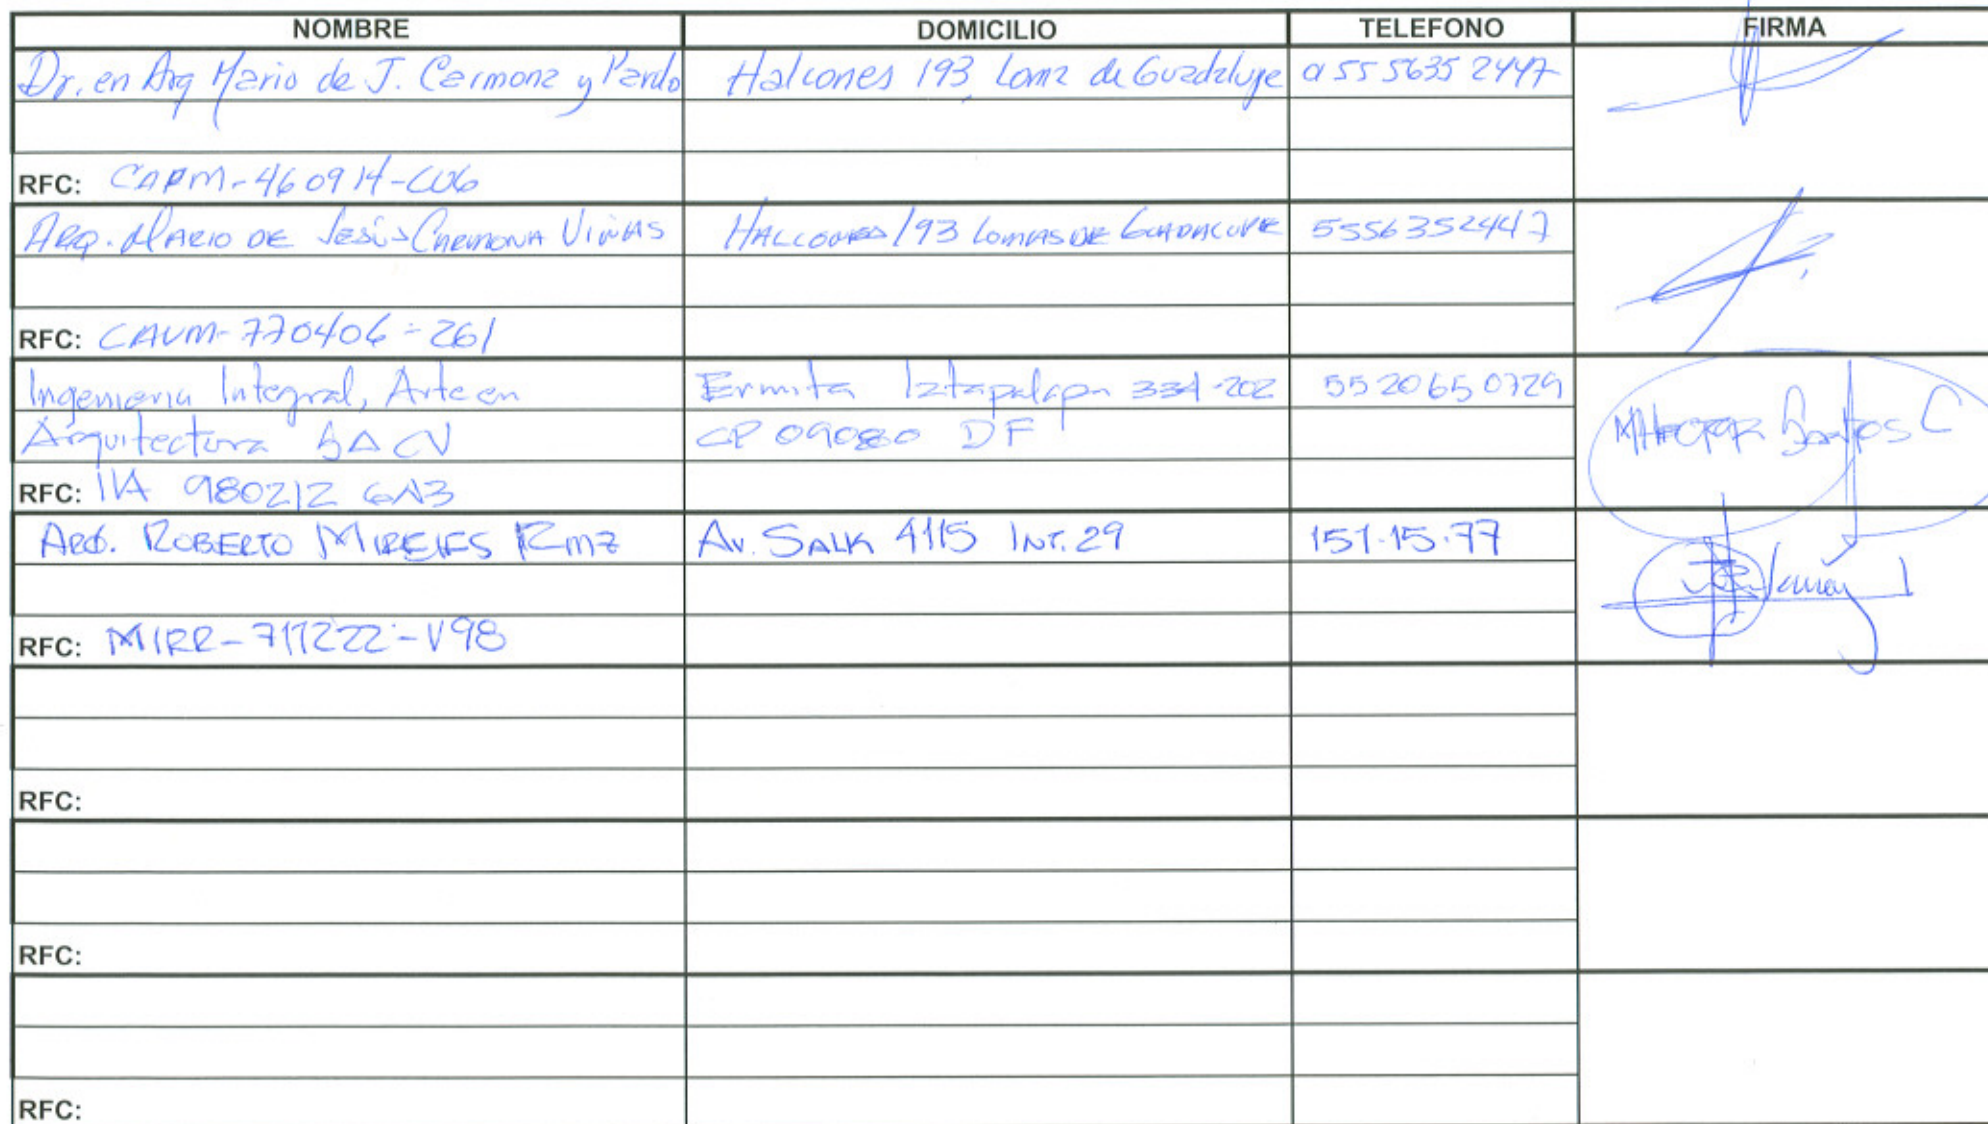 NOMBRE DOMICILIO TELEFONO FIRMA
Dr. en Arq Mario de J. Carmona y Pardo Halcones 193, Loma de Guadalupe 0 55 5635 2447
RFC: CAPM-460914-CU6
ARQ. MARIO DE JESÚS CARMONA VIÑAS HALCONES 193 LOMAS DE GUADALUPE 5556352447
RFC: CAVM-770406-261
Ingenieria Integral, Arte en Ermita Iztapalapa 334-202 55 20650729
Arquitectura SA CV CP 09080 DF
RFC: IIA 980212 6A3
ARQ. ROBERTO MIRELES Rmz Av. SALK 4115 INT. 29 151-15-77
RFC: MIRR-711222-V98
RFC:
RFC:
RFC: